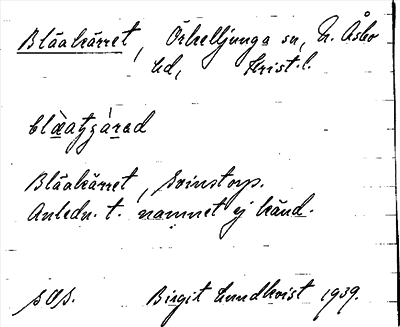 Blåakärret, Örkelljunga sn, N. Åsbo
hd, Krist. l.
Blåakärret, Svinstorp.
Anledn. t. namnet ej känd.
Birgit Lundkvist 1939.